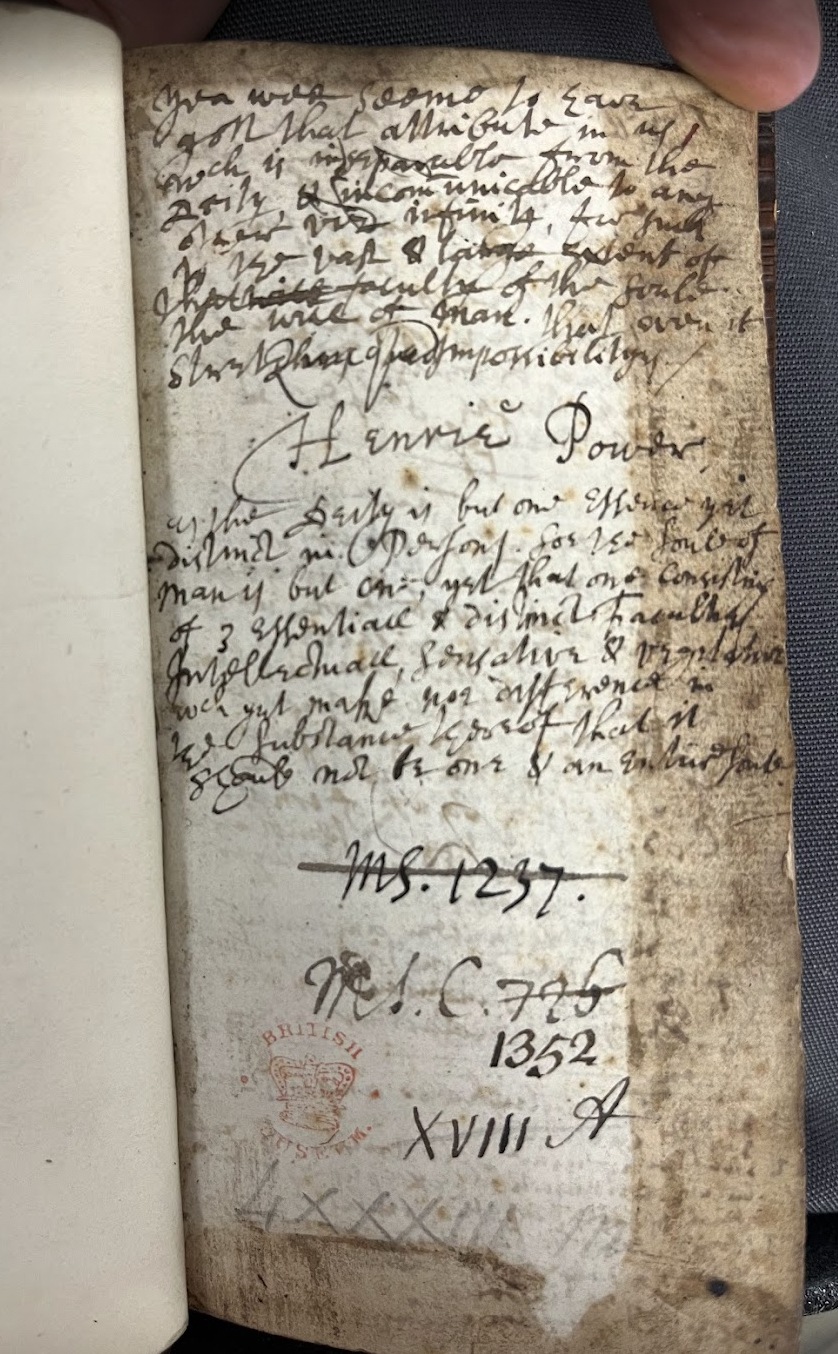 yea wee seeme to have
gott that attribute in us,
wch is inseparable from the
Deity, & incommunicable to any
other infinite, for such
is the vast & large extent of
faculty of the Soule
the will of Man. that even it
impossibilityes
Henrie Power
as the Deity is but one Essence yet
distinct in Persons. the Soule of
Man is but one, yet that one consisting
of 3 Essentiall & distinct Facultyes
Intellectuall, Sensative & vegetative
wch yet make noe difference in
the Substance thereof that it
should not be one & an Entire Soule
MS. 1237.
Ms. C. 776
1352
XVIII A
BRITISH
MUSEUM